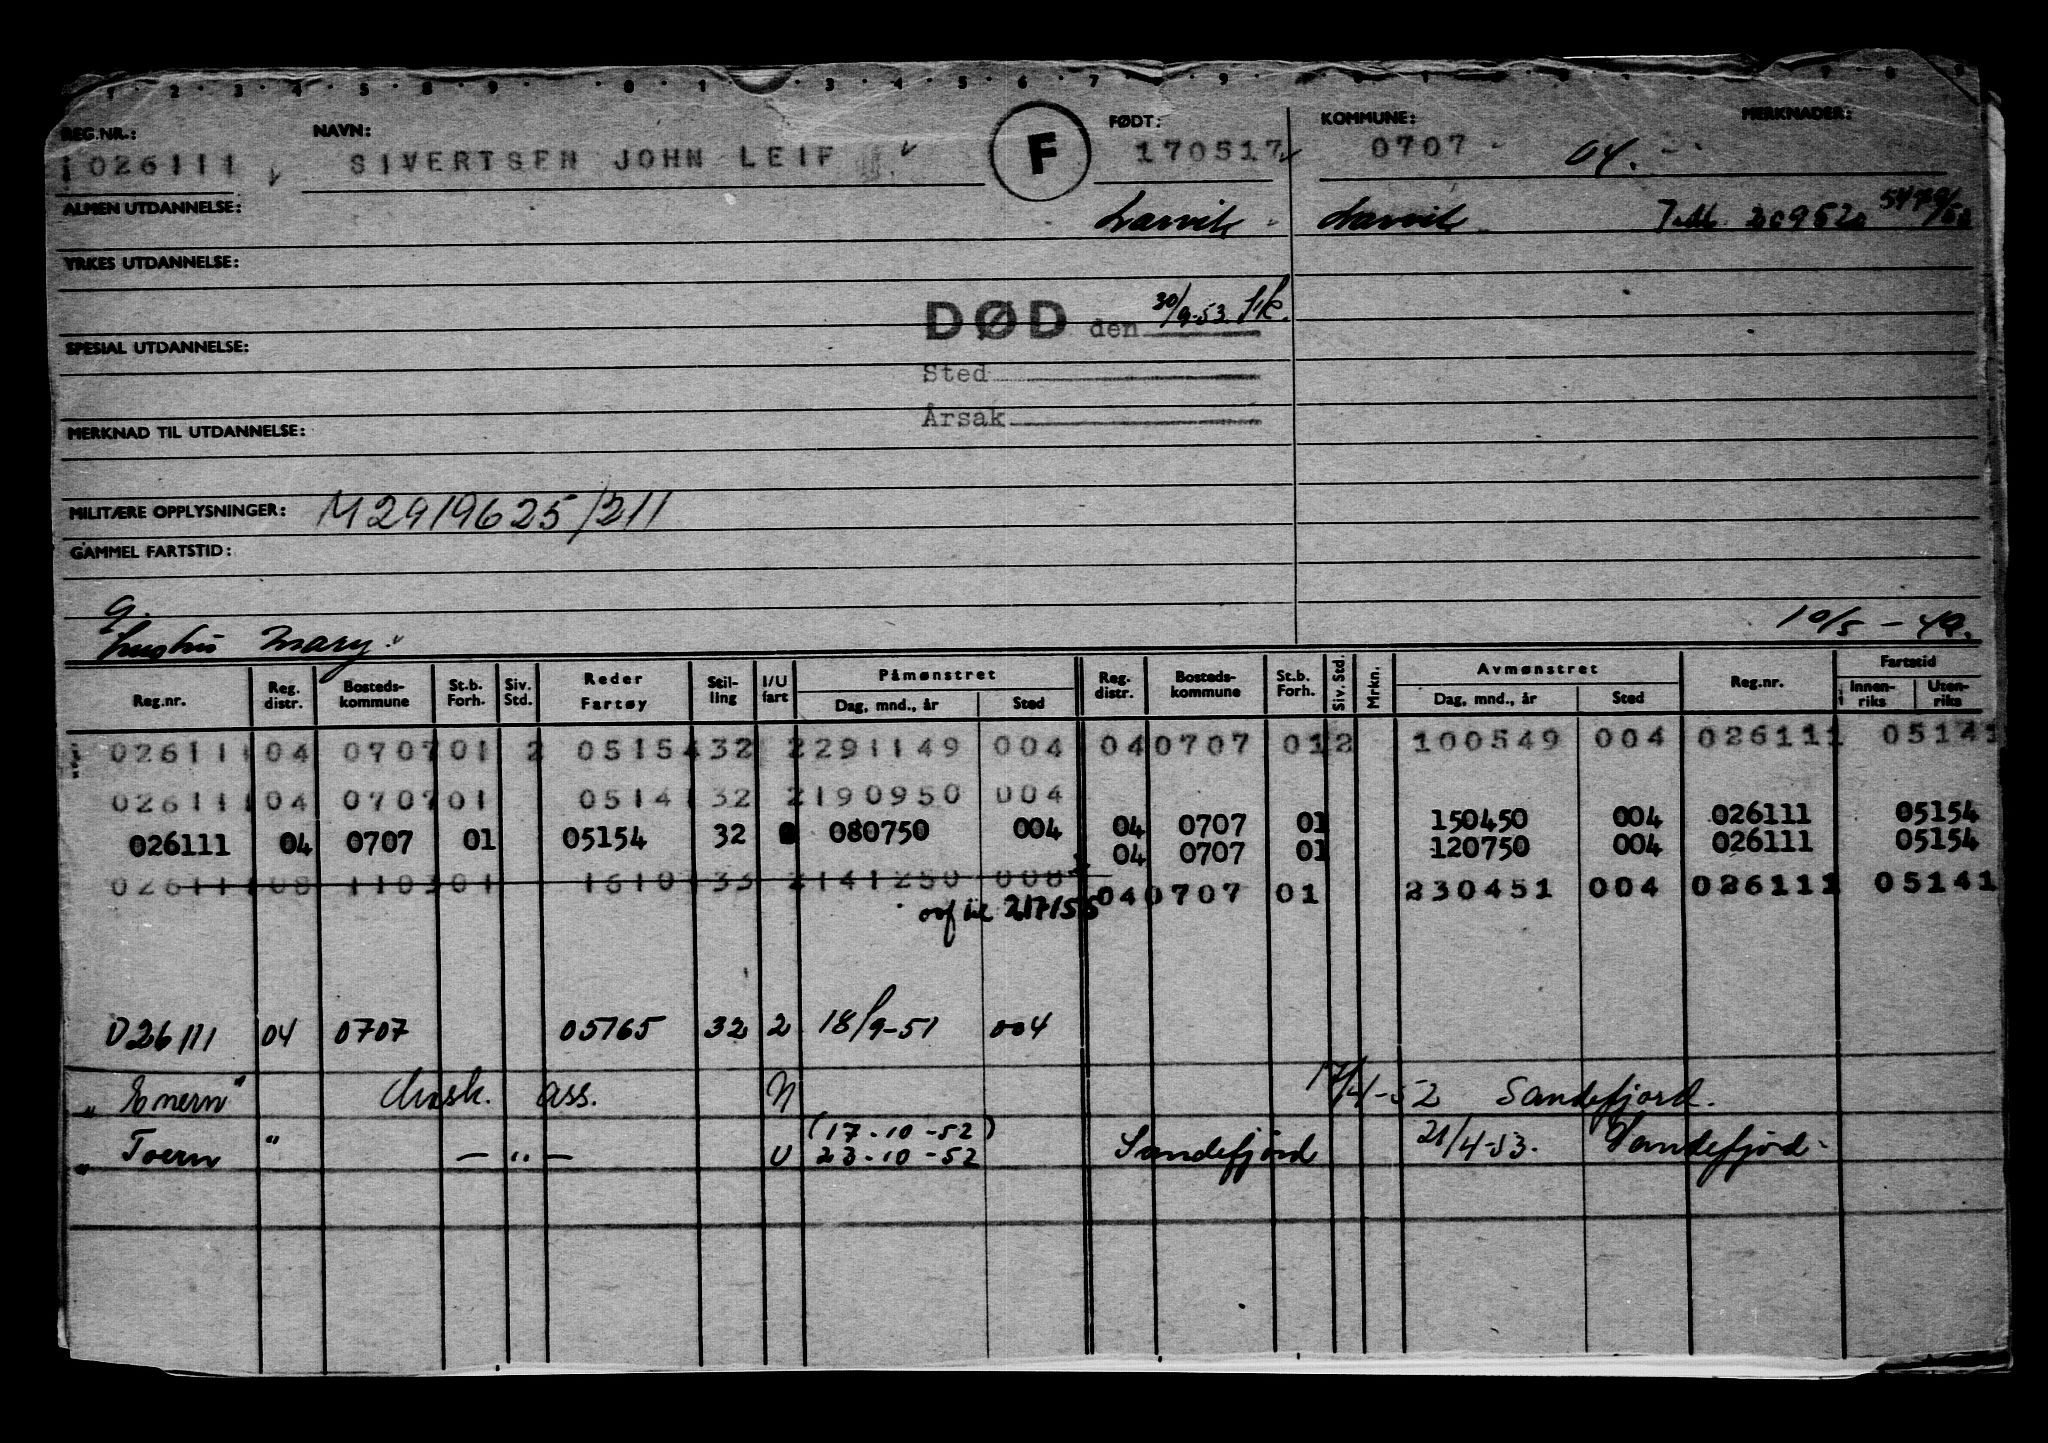 REG.NR.: NAVN: F FØDT: KOMMUNE: MERKNADER:
1026111 SIVERTSEN JOHN LEIF 170517 0707 04.
ALMEN UTDANNELSE: Larvik Larvik
YRKES UTDANNELSE:
DØD den 30/9-53.
SPESIAL UTDANNELSE:
Sted
Årsak
MERKNAD TIL UTDANNELSE:
MILITÆRE OPPLYSNINGER: M2919625/211
GAMMEL FARTSTID:
G. 10/5 - 49.
hustru Mary.
Reg.nr. Reg. distr. Bosteds-kommune St.b. Forh. Siv. Std. Reder Fartøy Stil-ling I/U fart Påmønstret Dag, mnd., år Sted Reg. distr. Bosteds-kommune St.b. Forh. Siv. Std. Mrkn. Avmønstret Dag, mnd., år Sted Reg.nr. Fartstid Innen-riks Uten-riks
026111 04 0707 01 2 05154 32 2 291149 004 04 0707 01 2 100549 004 026111 05141
026111 04 0707 01 05141 32 2 190950 004
04 0707 01 150450 004 026111 05154
026111 04 0707 01 05154 32 080750 004
04 0707 01 120750 004 026111 05154
026111 08 1103 01 16101 33 2 141250 008
04 0707 01 230451 004 026111 05141
ovf til 217155
026111 04 0707 05165 32 2 18/9-51 004
"Enern" mask. ass. N 17/4-52 Sandefjord.
"Toern" — " — U (17-10-52) 23-10-52 Sandefjord 21/4-53. Sandefjord